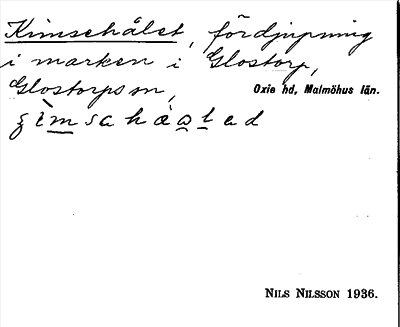 Kimsehålet, fördjupning
i marken i Glostorp,
Glostorps sn, Oxie hd, Malmöhus län.
NILS NILSSON 1936.